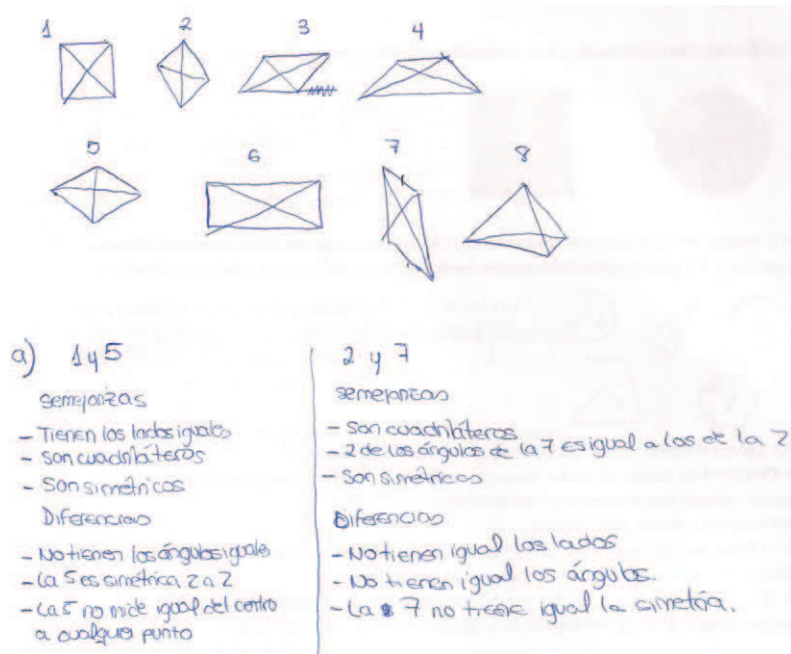 1 2 3 4
5 6 7 8
a) 1 y 5
semejanzas
- Tienen los lados iguales
- Son cuadriláteros
- Son simétricos
Diferencias
- No tienen los ángulos iguales
- La 5 es simétrica 2 a 2
- La 5 no mide igual del centro
a cualquier punto
2 y 7
semejanzas
- Son cuadriláteros
- 2 de los ángulos de la 7 es igual a los de la 2
- Son simétricos
Diferencias
- No tienen igual los lados
- No tienen igual los ángulos.
- La 7 no tiene igual la simetría.